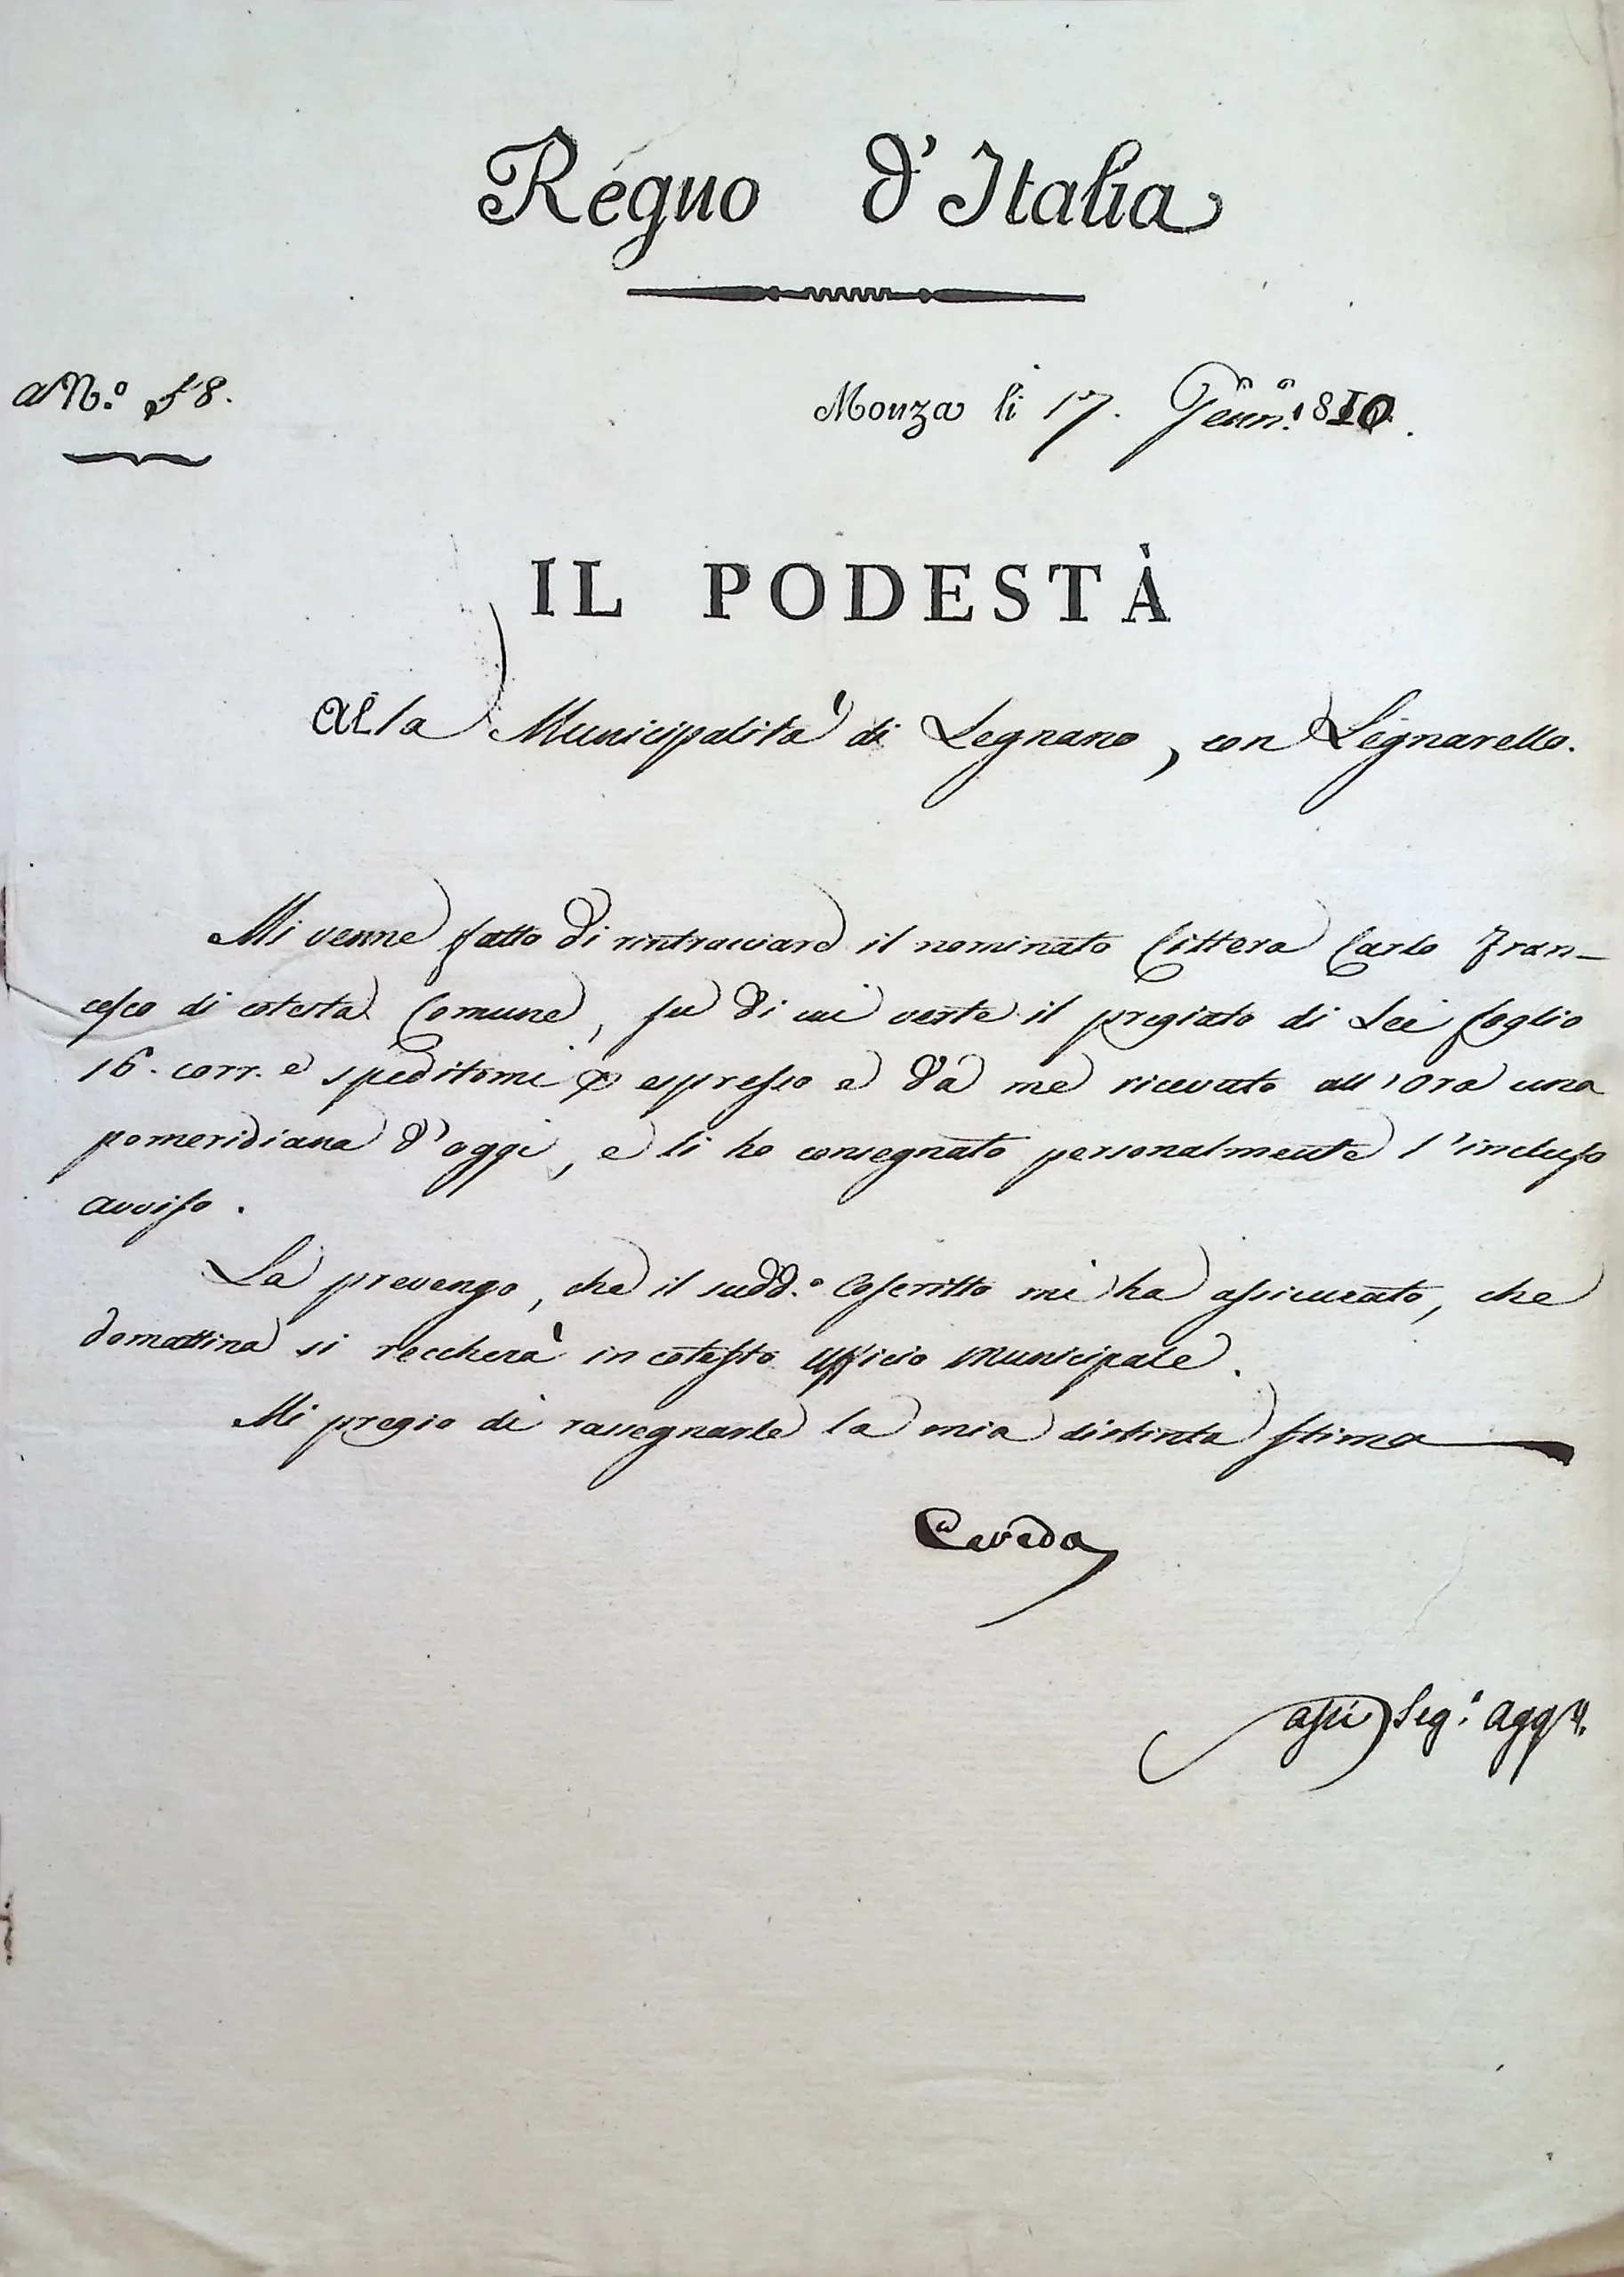 Regno d'Italia
N.º 58.
Monza li 17. Genn.º 1810.
IL PODESTÀ
Alla Municipalità di Legnano, con Legnarello.
Mi venne fatto di rintracciare il nominato Cittera Carlo Fran-
cesco di cotesta Comune, su di cui verte il pregiato di Lei foglio
16. corr. e speditomi espresso e da me ricevuto all'ora una
pomeridiana d'oggi, e li ho consegnato personalmente l'incluso
avviso.
La prevengo, che il sudd.º Coscritto mi ha assicurato, che
domattina si reccherà in cotesto Ufficio Municipale.
Mi pregio di rassegnarle la mia distinta stima
Cereda
Seg.º agg.